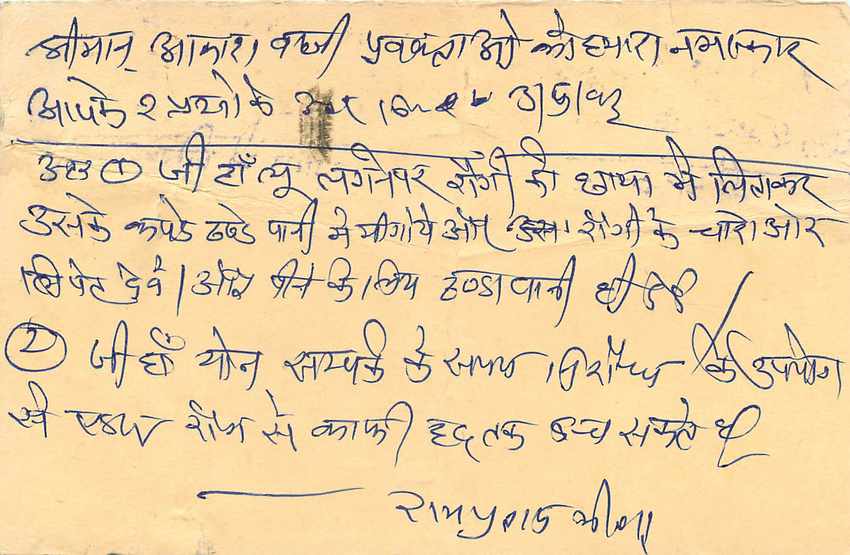 श्रीमान् आकाशवाणी प्रवक्ताओ को हमारा नमस्कार
आपके २ प्रश्नो के
① जी हाँ लू लगनेपर रोगी को छाया मे लिटाकर
उसके कपडे ठण्डे पानी मे भीगोये और उस रोगी के चारो ओर
लिपेट देवे। और पीने के लिय ठण्डा पानी
② जी हाँ योन सम्पर्क के समय निरोध के उपयोग
से एडस रोग से काफी हद तक बच सकते है
मीणा